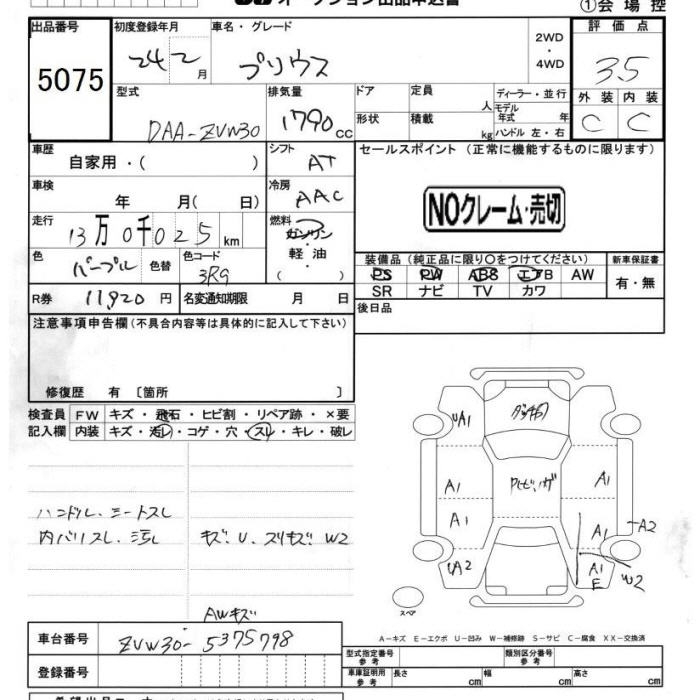 オークション出品申込書
①会場控
出品番号
5075
初度登録年月
24 2 月
車名・グレード
プリウス
2WD
・
4WD
評価点
3.5
型式
DAA-ZVW30
排気量
1790 cc
ドア
定員
人
ディーラー・並行
モデル年式 年
形状
積載
kg
ハンドル 左・右
外装
内装
C
C
車歴
自家用・( )
シフト
AT
セールスポイント (正常に機能するものに限ります)
車検
年 月( 日)
冷房
AAC
NOクレーム・売切
走行
13万0千025km
燃料
ガソリン
軽油
( )
色
パープル
色替
色コード
3R9
装備品 (純正品に限り○をつけてください)
新車保証書
PS
PW
ABS
エアB
AW
SR
ナビ
TV
カワ
有・無
R券
11920円
名変通知期限
月 日
後日品
注意事項申告欄(不具合内容等は具体的に記入して下さい)
修復歴 有 〔箇所 〕
検査員記入欄
FW
キズ・飛石・ヒビ割・リペア跡・×要
内装
キズ・汚レ・コゲ・穴・スレ・キレ・破レ
ハンドル、シートスレ
内バリスレ、汚レ
キズ、U、スリキズ W2
AWキズ
UA1
A1
A1
UA2
A1
A1
A2
A1
E
W2
スペア
A-キズ E-エクボ U-凹み W-補修跡 S-サビ C-腐食 XX-交換済
車台番号
ZVW30-5375798
登録番号
型式指定番号
参考
類別区分番号
参考
車庫証明用
参考
長さ
cm
幅
cm
高さ
cm